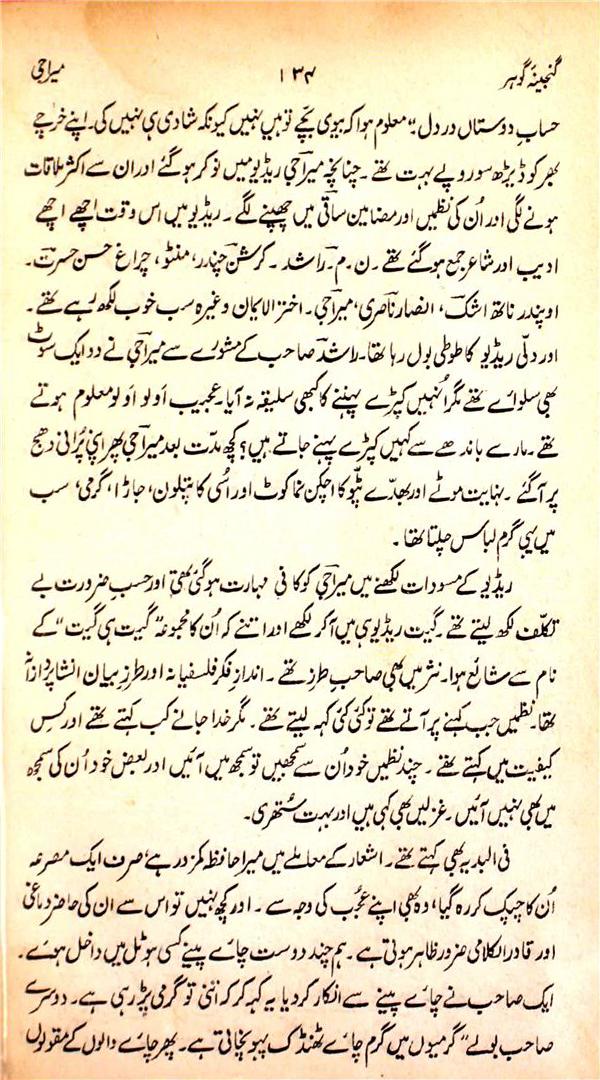 گنجینۂ گوہر ۱۳۴ میراجی
حساب دوستاں در دل۔" معلوم ہوا کہ بیوی بچّے تو ہیں نہیں کیونکہ شادی ہی نہیں کی۔ اپنے خرچے
بھر کو ڈیڑھ سو روپے بہت تھے۔ چنانچہ میراجی ریڈیو میں نوکر ہو گئے اور ان سے اکثر ملاقات
ہونے لگی اور اُن کی نظمیں اور مضامین ساقی میں چھپنے لگے۔ ریڈیو میں اس وقت اچھے اچھے
ادیب اور شاعر جمع ہو گئے تھے۔ ن۔م۔ راشد۔ کرشن چندر، منٹو، چراغ حسن حسرت۔
اوپندر ناتھ اشک، انصار ناصری، میراجی۔ اختر الایمان وغیرہ سب خوب لکھ رہے تھے۔
اور دلّی ریڈیو کا طوطی بول رہا تھا۔ راشد صاحب کے مشورے سے میراجی نے دو ایک سوٹ
بھی سلوائے تھے مگر اُنہیں کپڑے پہننے کا کبھی سلیقہ نہ آیا۔ عجیب اَولو اَولو معلوم ہوتے
تھے۔ مارے باندھے سے کہیں کپڑے پہنے جاتے ہیں؟ کچھ مدّت بعد میراجی پھر اپنی پُرانی دھج
پر آگئے۔ نہایت موٹے اور بھدّے پٹّو کا اچکن نما کوٹ اور اُسی کا پتلون، جاڑا، گرمی، سب
میں یہی گرم لباس چلتا تھا۔
ریڈیو کے مسودات لکھنے میں میراجی کو کافی مہارت ہوگئی تھی اور حسبِ ضرورت بے
تکلّف لکھ لیتے تھے۔ گیت ریڈیو ہی میں آکر لکھے اور اتنے کہ اُن کا مجموعہ "گیت ہی گیت" کے
نام سے شائع ہوا۔ نثر میں بھی صاحبِ طرز تھے۔ اندازِ فکر فلسفیانہ اور طرزِ بیان انشا پردازانہ
تھا۔ نظمیں جب کہنے پر آتے تھے تو کئی کئی کہہ لیتے تھے۔ مگر خدا جانے کب کہتے تھے اور کس
کیفیت میں کہتے تھے۔ چند نظمیں خود اُن سے سمجھیں تو سمجھ میں آئیں اور بعض خود اُن کی سمجھ
میں بھی نہیں آئیں۔ غزلیں بھی کہی ہیں اور بہت سُتھری۔
فی البدیہ بھی کہتے تھے۔ اشعار کے معاملے میں میرا حافظہ کمزور ہے، صرف ایک مصرعہ
اُن کا چپک کر رہ گیا، وہ بھی اپنے عجُب کی وجہ سے۔ اور کچھ نہیں تو اس سے ان کی حاضر دماغی
اور قادر الکلامی ضرور ظاہر ہوتی ہے۔ ہم چند دوست چائے پینے کسی ہوٹل میں داخل ہوئے۔
ایک صاحب نے چائے پینے سے انکار کر دیا یہ کہہ کر کہ اتنی تو گرمی پڑ رہی ہے۔ دوسرے
صاحب بولے "گرمیوں میں گرم چائے ٹھنڈک پہونچاتی ہے۔ پھر چائے والوں کے مقولوں